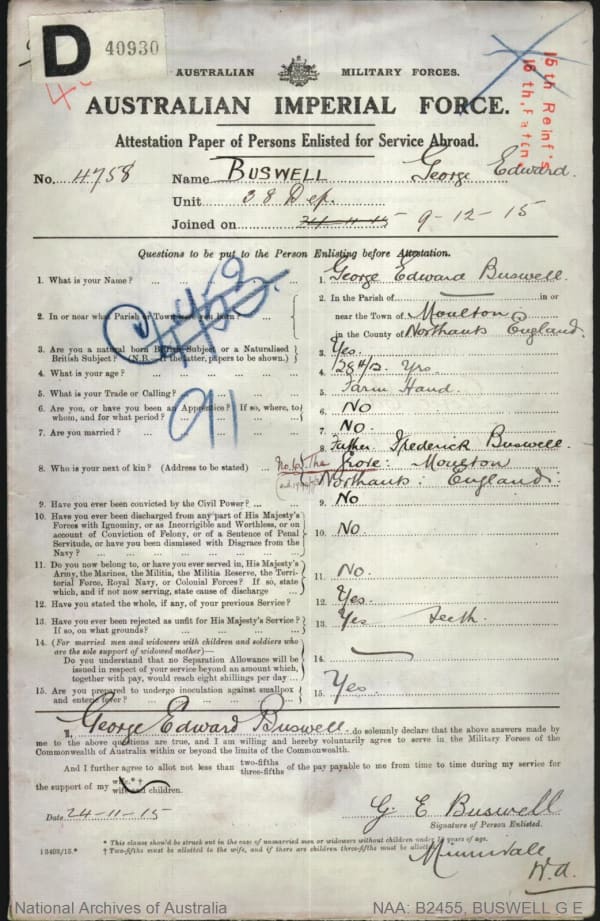 D 40930
15th Reinf's
16th Battn.
AUSTRALIAN MILITARY FORCES.
AUSTRALIAN IMPERIAL FORCE.
Attestation Paper of Persons Enlisted for Service Abroad.
No. 4758 Name BUSWELL George Edward.
Unit 38 Dep.
Joined on 24-11-15 9-12-15
Questions to be put to the Person Enlisting before Attestation.
1. What is your Name? ... 1. George Edward Buswell.
2. In or near what Parish or Town were you born? ... 2. In the Parish of — in or
near the Town of Moulton
in the County of Northants England.
3. Are you a natural born British Subject or a Naturalised
British Subject? (N.B.—If the latter, papers to be shown.) 3. Yes.
4. What is your age? ... 4. 28 4/12 Yrs.
5. What is your Trade or Calling? ... 5. Farm Hand.
6. Are you, or have you been an Apprentice? If so, where, to
whom, and for what period? ... 6. NO
7. Are you married? ... 7. NO.
8. Father Frederick Buswell.
8. Who is your next of kin? (Address to be stated) ... No. 6 The Grove: Moulton
Northants: England:
9. Have you ever been convicted by the Civil Power? ... 9. No
10. Have you ever been discharged from any part of His Majesty's
Forces with Ignominy, or as Incorrigible and Worthless, or on
account of Conviction of Felony, or of a Sentence of Penal
Servitude, or have you been Dismissed with Disgrace from the
Navy? ... 10. No.
11. Do you now belong to, or have you ever served in, His Majesty's
Army, the Marines, the Militia, the Militia Reserve, the Terri-
torial Force, Royal Navy, or Colonial Forces? If so, state
which, and if not now serving, state cause of discharge ... 11. No.
12. Have you stated the whole, if any, of your previous Service? 12. Yes.
13. Have you ever been rejected as unfit for His Majesty's Service?
If so, on what grounds? ... 13. Yes Teeth.
14. (For married men and widowers with children and soldiers who
are the sole support of widowed mother)—
Do you understand that no Separation Allowance will be
issued in respect of your service beyond an amount which,
together with pay, would reach eight shillings per day ... 14. —
15. Are you prepared to undergo inoculation against smallpox
and enteric fever? ... 15. Yes.
I, George Edward Buswell do solemnly declare that the above answers made by
me to the above questions are true, and I am willing and hereby voluntarily agree to serve in the Military Forces of the
Commonwealth of Australia within or beyond the limits of the Commonwealth.
And I further agree to allot not less than two-fifths three-fifths of the pay payable to me from time to time during my service for
the support of my wife.*† wife and children.
Date 24-11-15
G. E Buswell
Signature of Person Enlisted.
* This clause should be struck out in the case of unmarried men or widowers without children under 18 years of age.
† Two-fifths must be allotted to the wife, and if there are children three-fifths must be allotted.
Minnivale
W.A.
National Archives of Australia NAA: B2455, BUSWELL G E